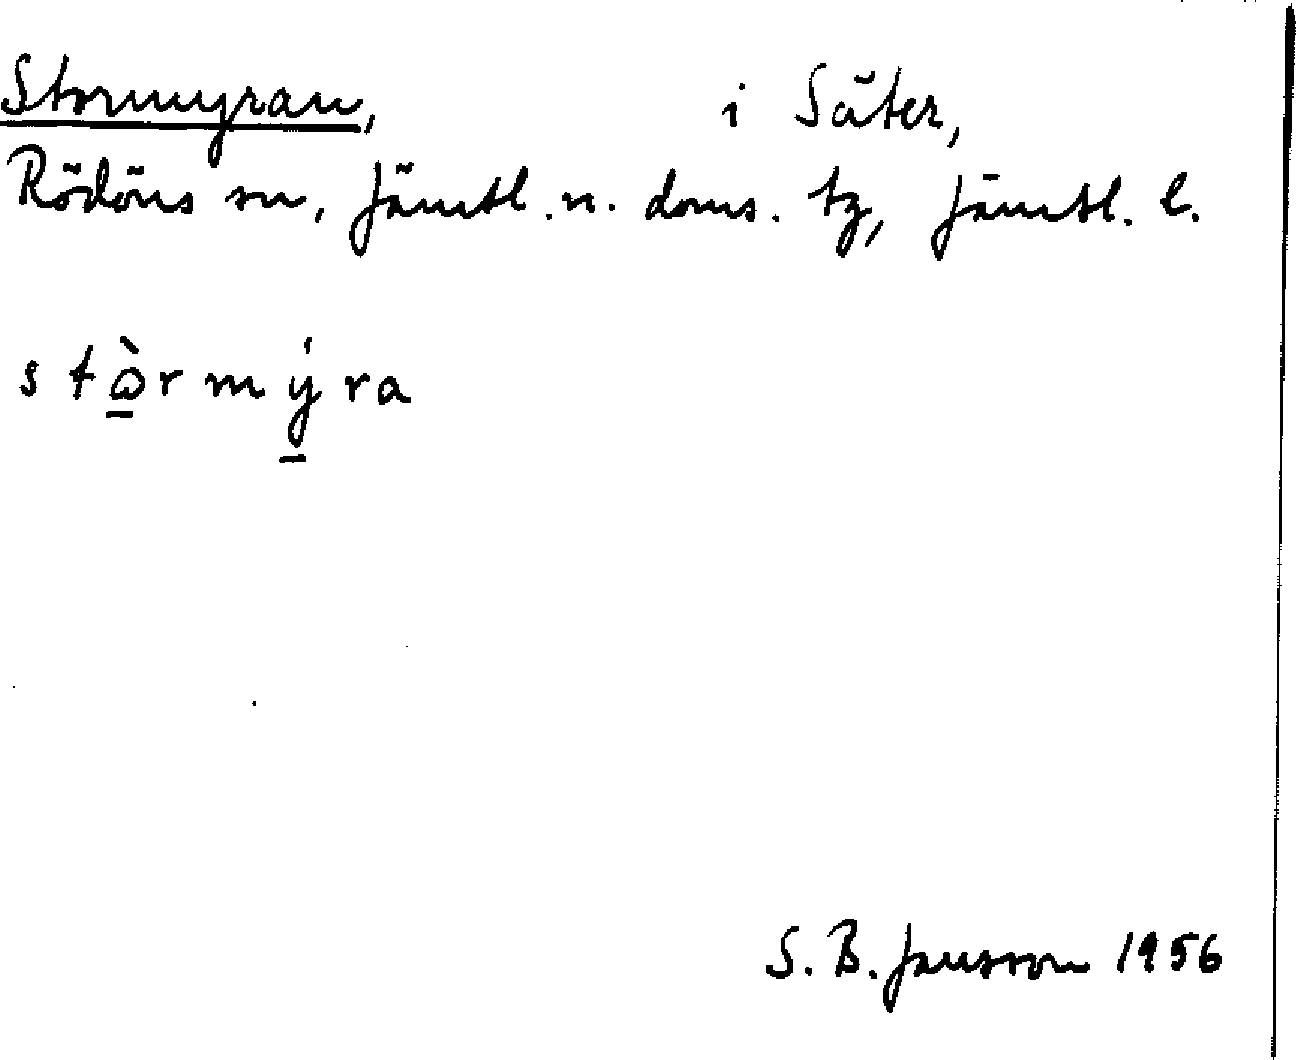 Stormyran, i Säter,
Rödöns sn, Jämtl. n. doms. tg, Jämtl. l.
stɷ̲̀rmý̲ra
S. B. Jansson 1956